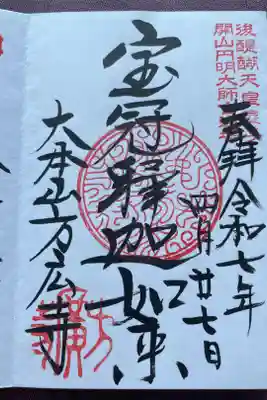 後醍醐天皇
開山円明大師
奉拝 令和七年
四月廿七日
宝冠釋迦如来
大本山方広寺